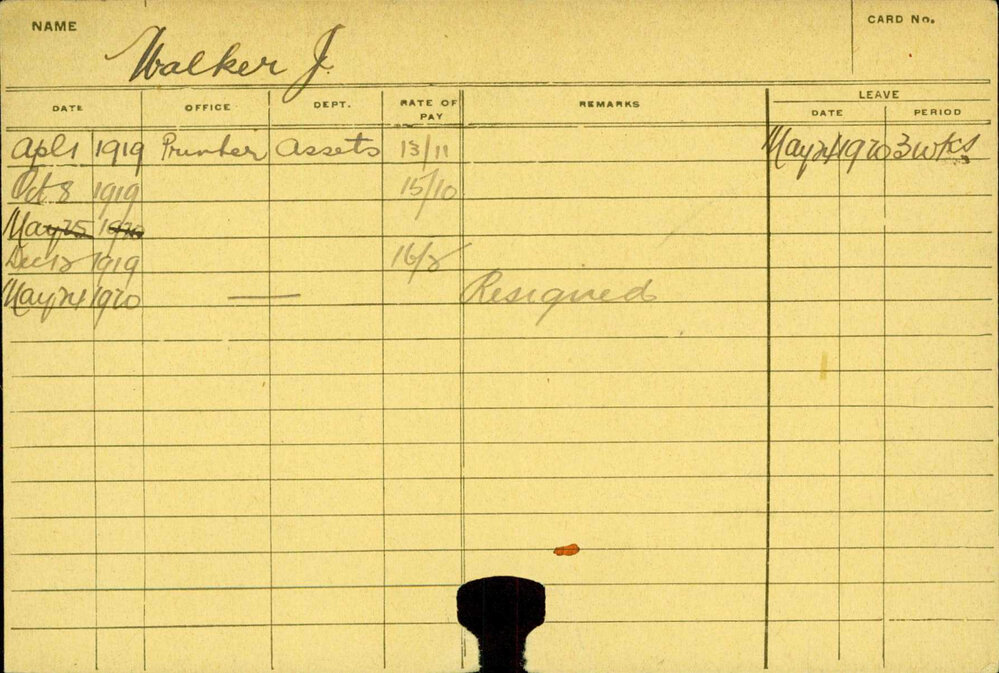 NAME Walker J. CARD No.
DATE OFFICE DEPT. RATE OF PAY REMARKS LEAVE DATE PERIOD
Apl 1 1919 Printer Assets 13/11 May 24 1920 3 wks
Oct 8 1919 15/10
May 25 1920
Dec 12 1919 16/2
May 24 1920 — Resigned